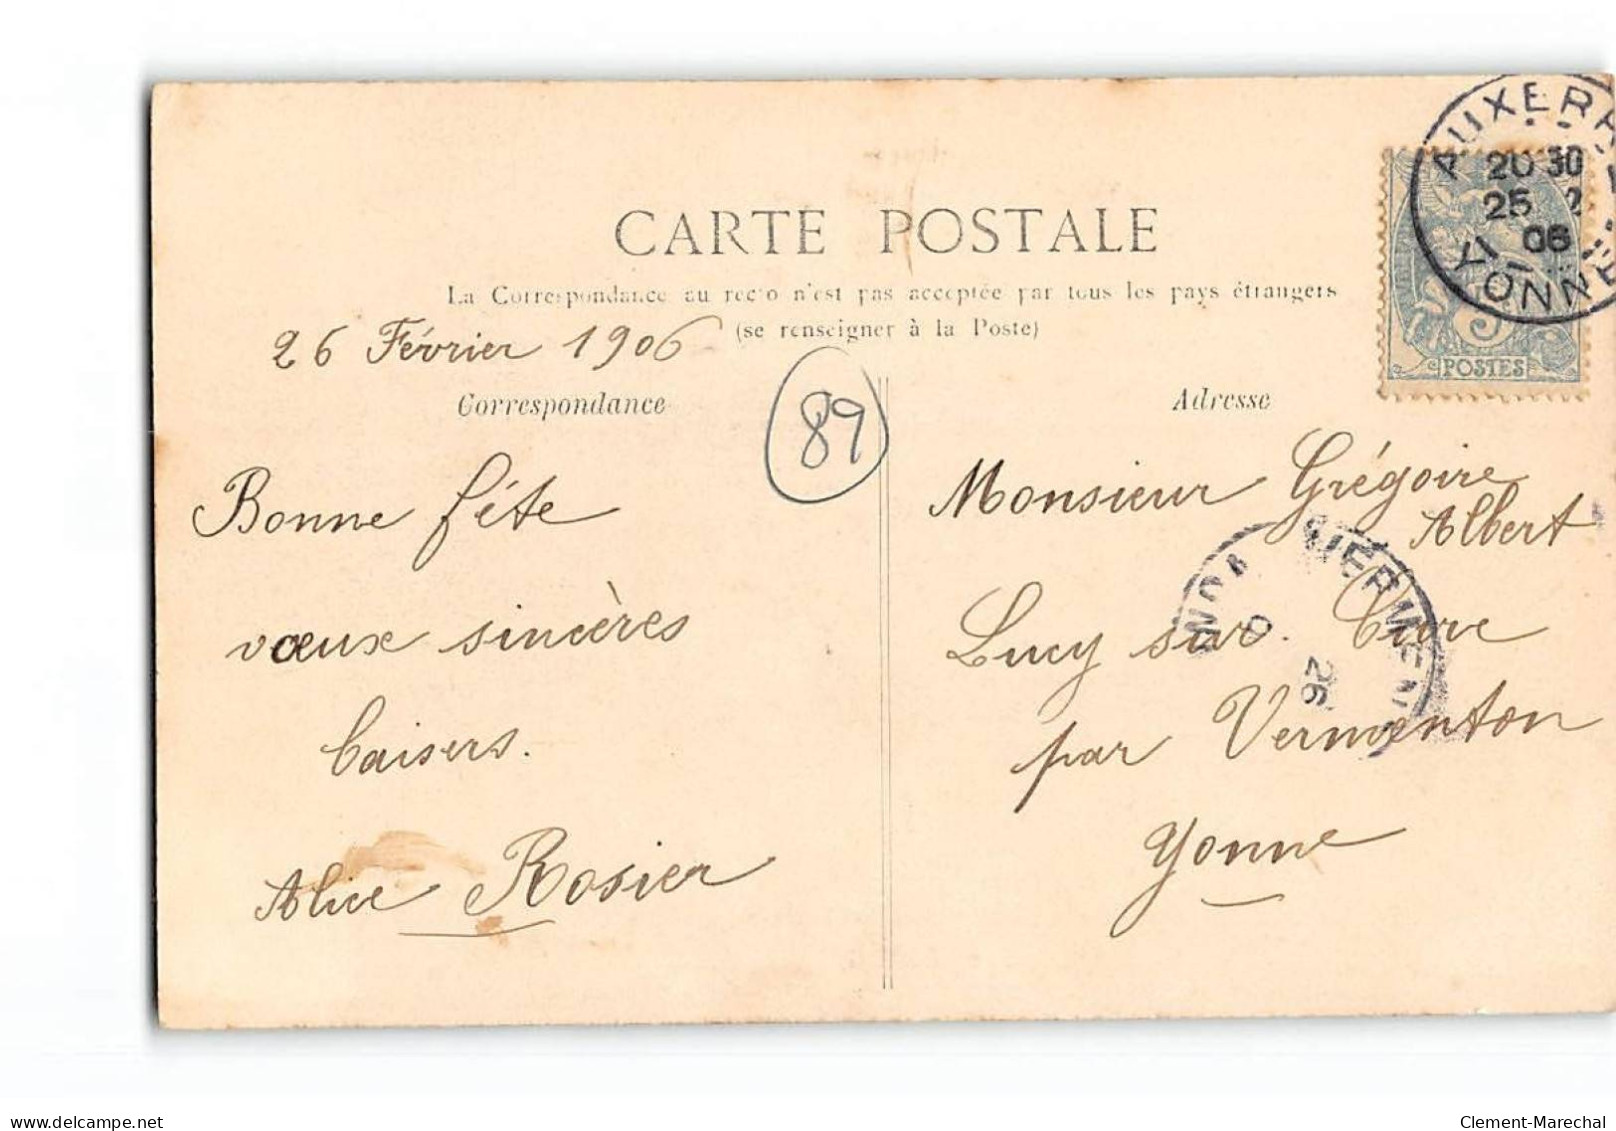 CARTE POSTALE
La Correspondance au recto n'est pas acceptée par tous les pays étrangers
(se renseigner à la Poste)
26 Février 1906
Correspondance
89
Bonne fête
vœux sincères
baisers.
Alice Rosier
AUXERR
20 30
25 2
06
YONNE
5
POSTES
Adresse
Monsieur Grégoire
Albert
Lucy sur Cure
par Vermenton
Yonne
26
delcampe.net
Clement-Marechal